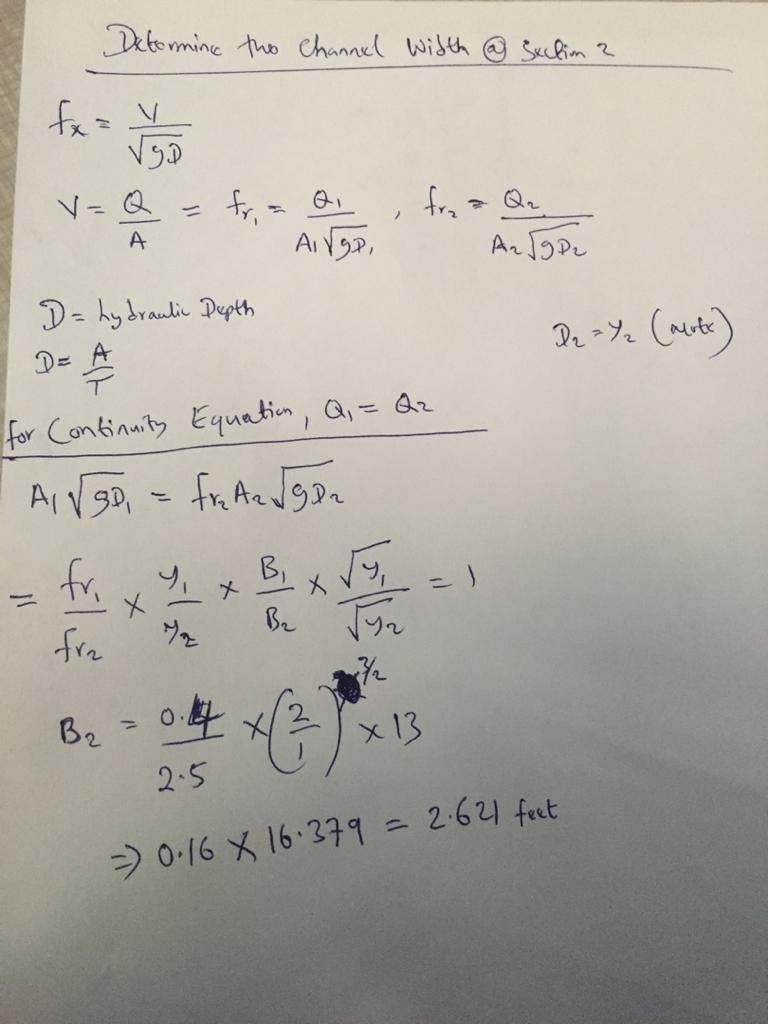 Determine the Channel Width @ Section 2
fx = V / √gD
V = Q / A = fr₁ = Q₁ / A₁√gD₁ , fr₂ = Q₂ / A₂√gD₂
D = hydraulic Depth
D₂ = y₂ (note)
D = A / T
for Continuity Equation, Q₁ = Q₂
A₁√gD₁ = fr₂ A₂ √gD₂
= fr₁ / fr₂ × y₁ / y₂ × B₁ / B₂ × √y₁ / √y₂ = 1
B₂ = 0.4 / 2.5 × (2 / 1)^3/2 × 13
⇒ 0.16 × 16.379 = 2.621 feet